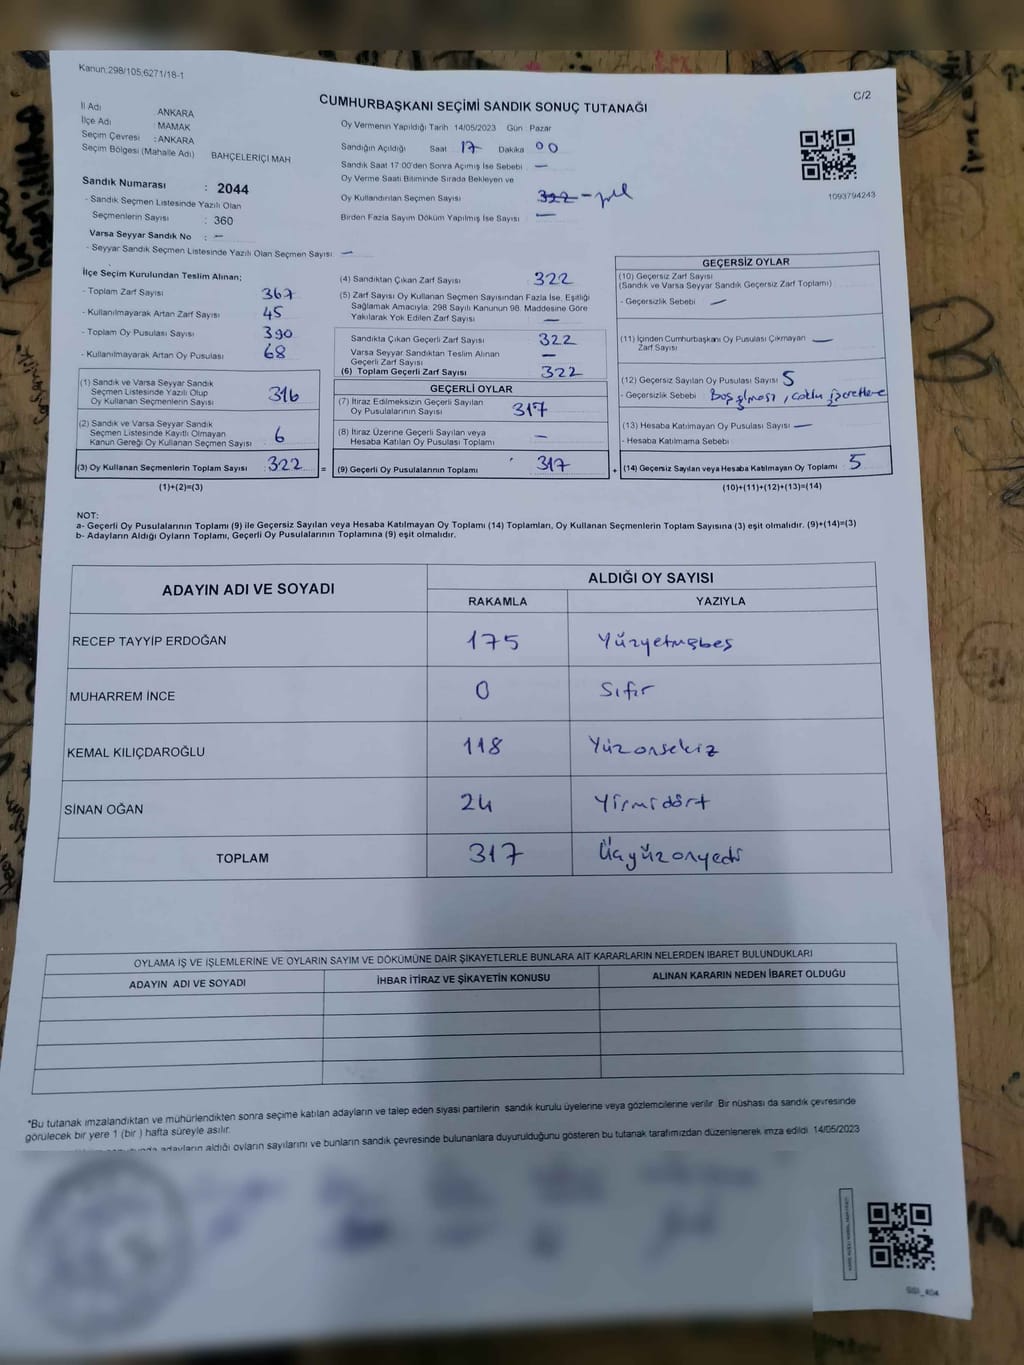 Kanun:298/105,6271/18-1
C/2
CUMHURBAŞKANI SEÇİMİ SANDIK SONUÇ TUTANAĞI
İl Adı ANKARA
İlçe Adı : MAMAK
Seçim Çevresi : ANKARA
Seçim Bölgesi (Mahalle Adı) BAHÇELERİÇİ MAH
Oy Vermenin Yapıldığı Tarih 14/05/2023 Gün Pazar
Sandığın Açıldığı Saat 17 Dakika 00
Sandık Saat 17:00'den Sonra Açımış İse Sebebi —
Oy Verme Saati Bitiminde Sırada Bekleyen ve
Oy Kullandırılan Seçmen Sayısı 322
Birden Fazla Sayım Döküm Yapılmış İse Sayısı —
1093794243
Sandık Numarası : 2044
- Sandık Seçmen Listesinde Yazılı Olan
Seçmenlerin Sayısı : 360
Varsa Seyyar Sandık No : —
- Seyyar Sandık Seçmen Listesinde Yazılı Olan Seçmen Sayısı: —
İlçe Seçim Kurulundan Teslim Alınan;
- Toplam Zarf Sayısı 367
- Kullanılmayarak Artan Zarf Sayısı : 45
- Toplam Oy Pusulası Sayısı : 390
- Kullanılmayarak Artan Oy Pusulası : 68
(1) Sandık ve Varsa Seyyar Sandık
Seçmen Listesinde Yazılı Olup
Oy Kullanan Seçmenlerin Sayısı : 316
(2) Sandık ve Varsa Seyyar Sandık
Seçmen Listesinde Kayıtlı Olmayan
Kanun Gereği Oy Kullanan Seçmen Sayısı : 6
(3) Oy Kullanan Seçmenlerin Toplam Sayısı : 322 =
(1)+(2)=(3)
(4) Sandıktan Çıkan Zarf Sayısı 322
(5) Zarf Sayısı Oy Kullanan Seçmen Sayısından Fazla İse, Eşitliği
Sağlamak Amacıyla: 298 Sayılı Kanunun 98. Maddesine Göre
Yakılarak Yok Edilen Zarf Sayısı —
Sandıkta Çıkan Geçerli Zarf Sayısı : 322
Varsa Seyyar Sandıktan Teslim Alınan
Geçerli Zarf Sayısı —
(6) Toplam Geçerli Zarf Sayısı : 322
GEÇERLİ OYLAR
(7) İtiraz Edilmeksizin Geçerli Sayılan
Oy Pusulalarının Sayısı : 317
(8) İtiraz Üzerine Geçerli Sayılan veya
Hesaba Katılan Oy Pusulası Toplamı : —
(9) Geçerli Oy Pusulalarının Toplamı : 317 +
GEÇERSİZ OYLAR
(10) Geçersiz Zarf Sayısı
(Sandık ve Varsa Seyyar Sandık Geçersiz Zarf Toplamı)
- Geçersizlik Sebebi : —
(11) İçinden Cumhurbaşkanı Oy Pusulası Çıkmayan —
Zarf Sayısı
(12) Geçersiz Sayılan Oy Pusulası Sayısı 5
- Geçersizlik Sebebi : Boş olması, çoklu işaretleme
(13) Hesaba Katılmayan Oy Pusulası Sayısı —
- Hesaba Katılmama Sebebi
(14) Geçersiz Sayılan veya Hesaba Katılmayan Oy Toplamı : 5
(10)+(11)+(12)+(13)=(14)
NOT:
a- Geçerli Oy Pusulalarının Toplamı (9) ile Geçersiz Sayılan veya Hesaba Katılmayan Oy Toplamı (14) Toplamları, Oy Kullanan Seçmenlerin Toplam Sayısına (3) eşit olmalıdır. (9)+(14)=(3)
b- Adayların Aldığı Oyların Toplamı, Geçerli Oy Pusulalarının Toplamına (9) eşit olmalıdır.
ADAYIN ADI VE SOYADI
ALDIĞI OY SAYISI
RAKAMLA YAZIYLA
RECEP TAYYİP ERDOĞAN 175 Yüzyetmişbeş
MUHARREM İNCE 0 Sıfır
KEMAL KILIÇDAROĞLU 118 Yüzonsekiz
SİNAN OĞAN 24 Yirmidört
TOPLAM 317 Üçyüzonyedi
OYLAMA İŞ VE İŞLEMLERİNE VE OYLARIN SAYIM VE DÖKÜMÜNE DAİR ŞİKAYETLERLE BUNLARA AİT KARARLARIN NELERDEN İBARET BULUNDUKLARI
ADAYIN ADI VE SOYADI İHBAR İTİRAZ VE ŞİKAYETİN KONUSU ALINAN KARARIN NEDEN İBARET OLDUĞU
*Bu tutanak imzalandıktan ve mühürlendikten sonra seçime katılan adayların ve talep eden siyasi partilerin sandık kurulu üyelerine veya gözlemcilerine verilir. Bir nüshası da sandık çevresinde
görülecek bir yere 1 (bir ) hafta süreyle asılır.
adayların aldığı oyların sayılarını ve bunların sandık çevresinde bulunanlara duyurulduğunu gösteren bu tutanak tarafımızdan düzenlenerek imza edildi. 14/05/2023